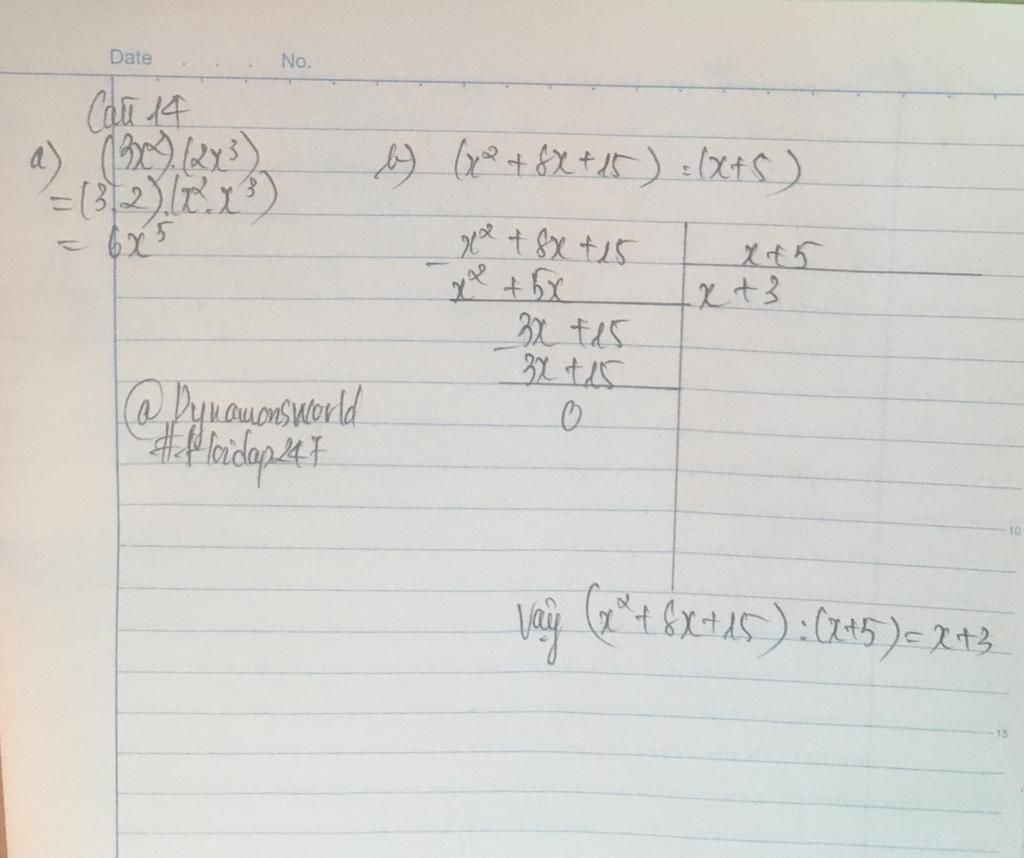 Date . . . No.
Câu 14
a) (3x²).(2x³)
= (3.2).(x².x³)
= 6x⁵
b) (x² + 8x + 15) : (x+5)
x² + 8x + 15 | x + 5
- x² + 5x | x + 3
3x + 15
- 3x + 15
0
@Dynamonsworld
#hoidap247
10
Vậy (x² + 8x + 15) : (x+5) = x+3
15